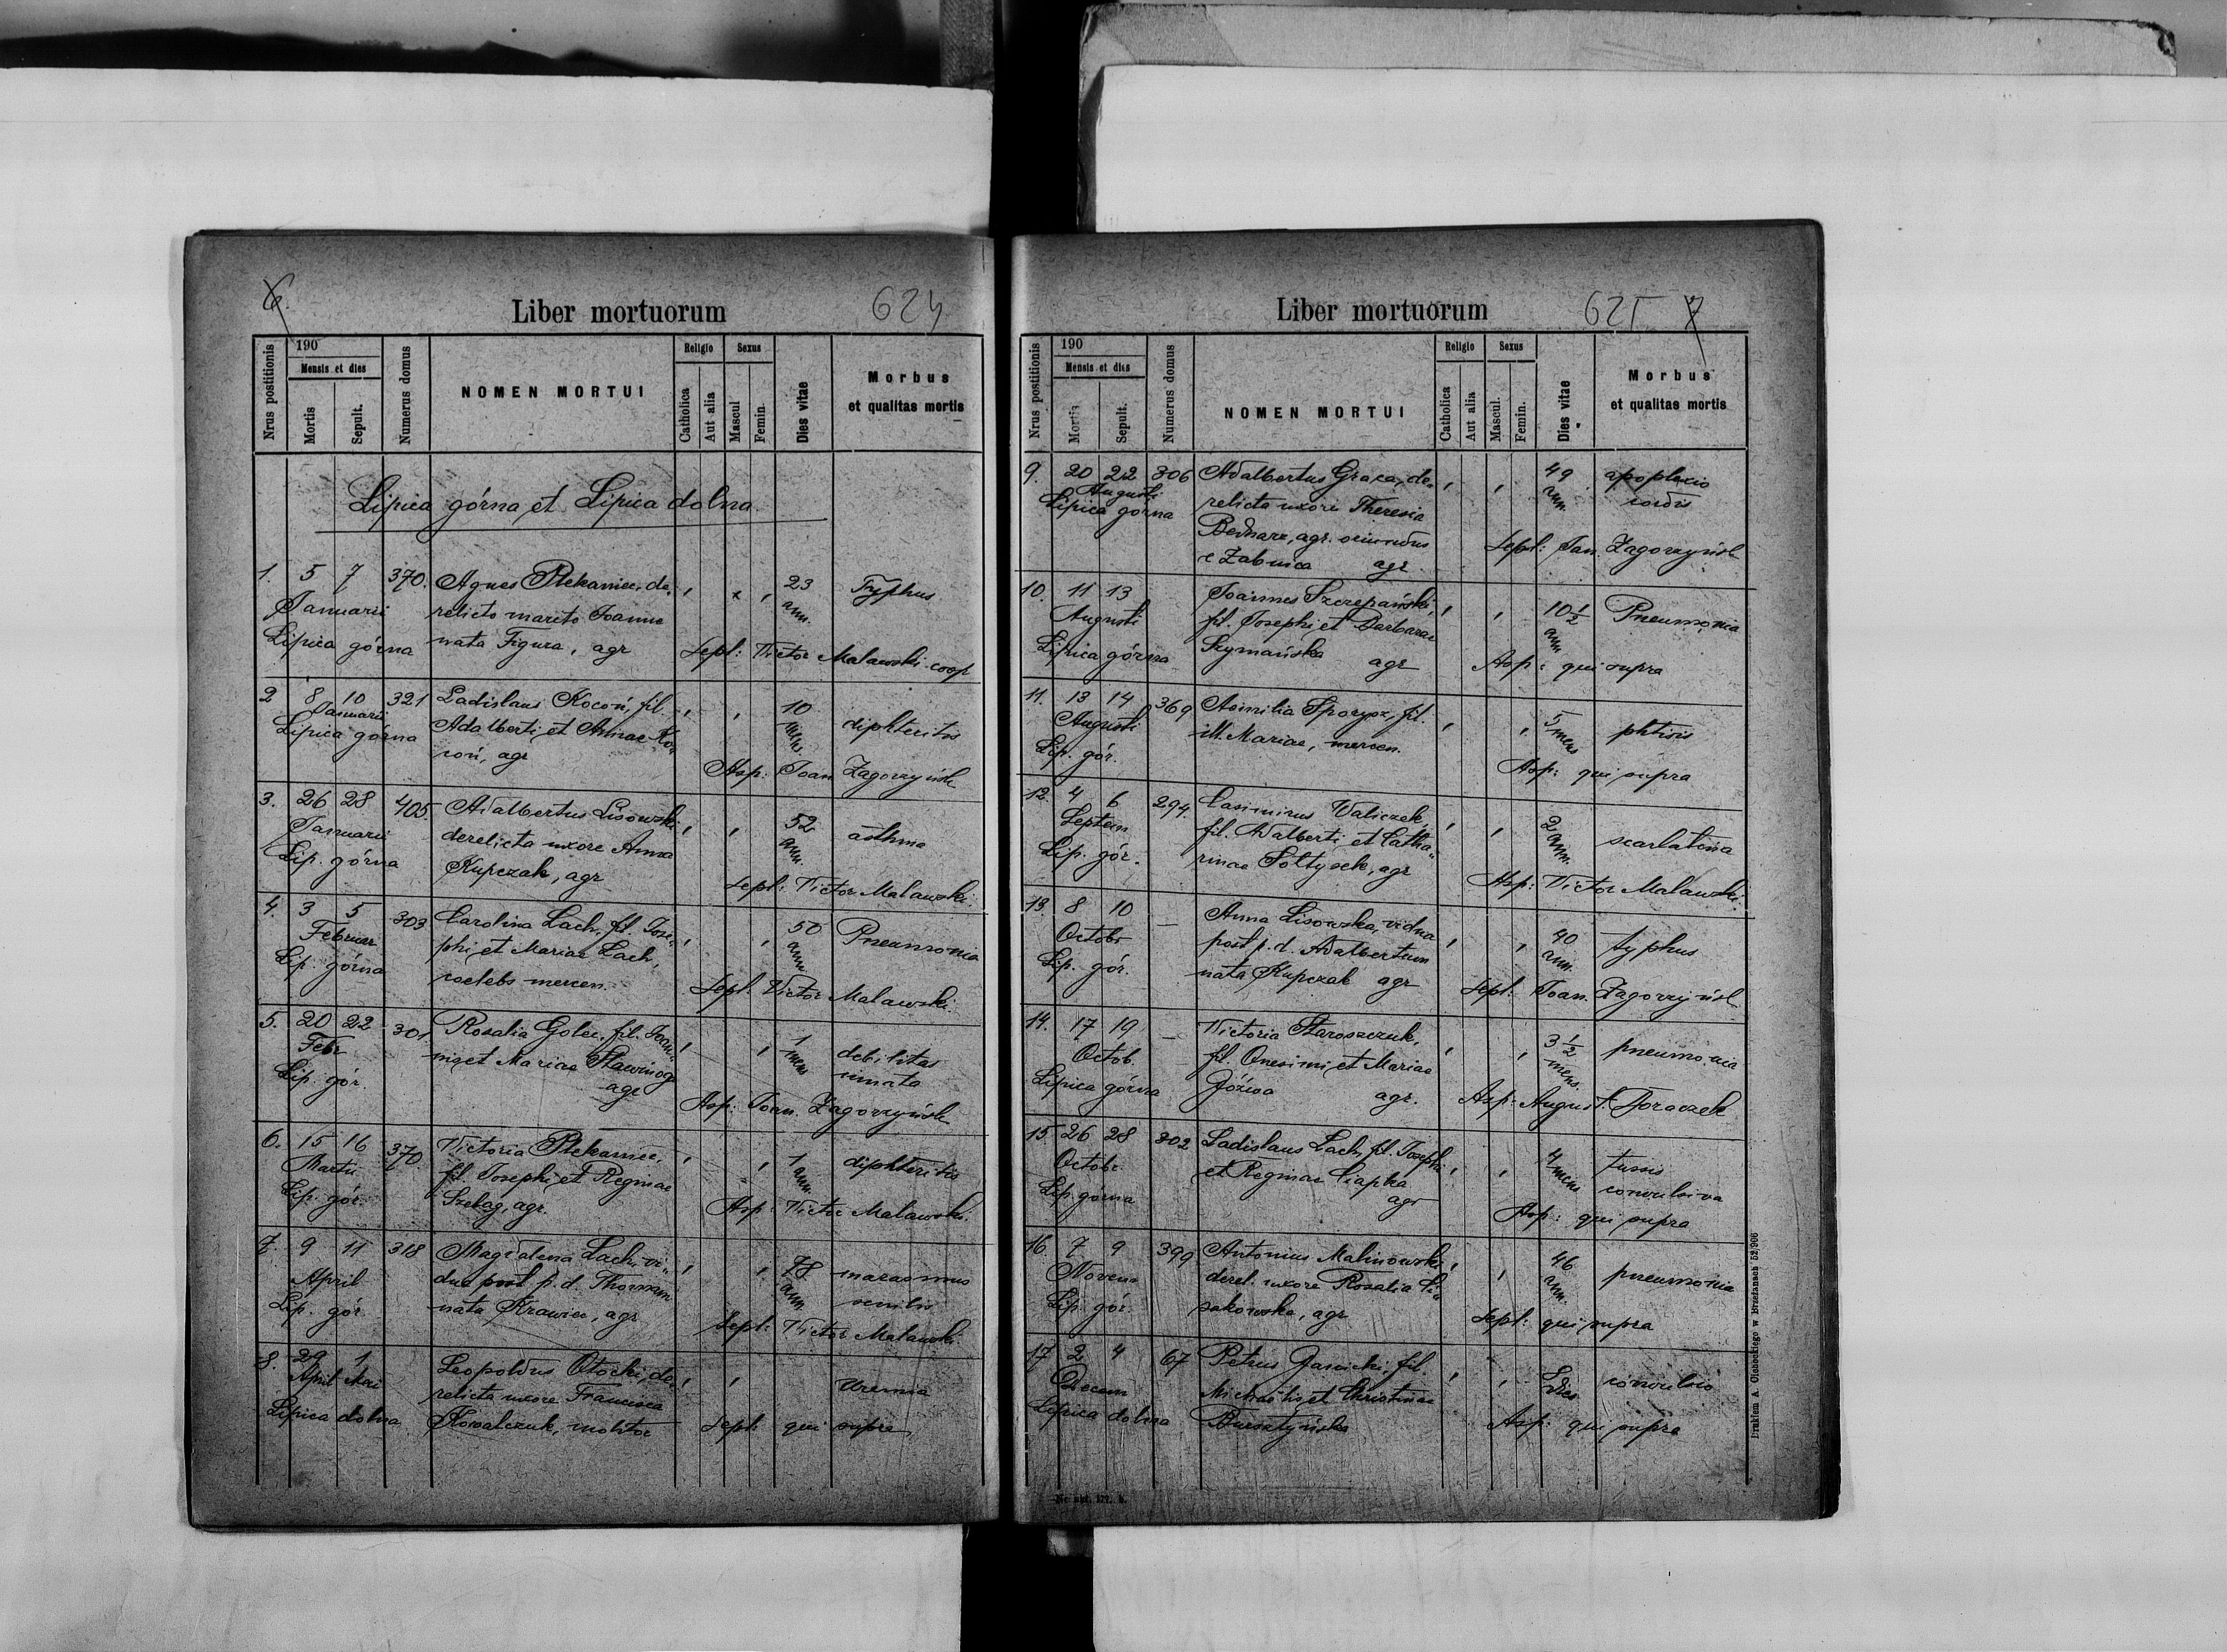 6.
Liber mortuorum
624
Nrus postitionis
190
Mensis et dies
Mortis
Sepult.
Numerus domus
NOMEN MORTUI
Religio
Catholica
Aut alia
Sexus
Mascul
Femin.
Dies vitae
Morbus
et qualitas mortis
Lipica górna et Lipica dolna
1. 5 7 370. Agnes Ptekaniec, de- 23 Typhus
Januarii relicto marito Joanne ann.
Lipica górna nata Figura, agr Sepl: Victor Malawski coop
2 8 10 321 Ladislaus Kocoń, fil. 10 diphteritis
Januarii Adalberti et Annae Ko- mens.
Lipica górna coń, agr Asp: Joan. Zagorzyńsk
3. 26 28 405 Adalbertus Lisowski 52 asthma
Januarii derelicta uxore Anna ann.
Lip. górna Kupczak, agr Sepl: Victor Malawski.
4. 3 5 303 Carolina Lach, fil. Jose- 50 Pneumonia
Februar phi et Mariae Lach, ann.
Lip. górna coelebs mercen. Sepl. Victor Malawski.
5. 20 22 301 Rosalia Golec, fil. Joan- 1 debilitas
Febr nis et Mariae mens innata
Lip. gór. agr Asp: Joan. Zagorzyńsk
6. 15 16 370 Victoria Ptekaniec, 1 diphteritis
Martii fil. Josephi et Reginae ann.
Lip. gór. Szeląg, agr. Asp: Victor Malawski.
7. 9 11 318 Magdalena Lach, vi- 78 marasmus
April dua post p. d. Thomam ann. senilis
Lip. gór nata Krawiec, agr Sepl: Victor Malawski
8. 29 1 Leopoldus Otocki, de- Uremia
April Mai relicta uxore Francisca
Lipica dolna Kowalczuk, molitor Sepl: qui supra
Liber mortuorum
625 7
Nrus postitionis
190
Mensis et dies
Mortis
Sepult.
Numerus domus
NOMEN MORTUI
Religio
Catholica
Aut alia
Sexus
Mascul.
Femin.
Dies vitae
Morbus
et qualitas mortis
9. 20 22 306 Adalbertus Graca, de- 49 apoplexio
Augusti relicta uxore Theresia ann. cordis
Lipica górna Bednarz, agr. oriundus Sepl: Joan. Zagorzyńsk
e Żabnica agr
10. 11 13 Joannes Szczepański, 10 1/2 Pneumonia
Augusti fil. Josephi et Barbarae ann
Lipica górna Szymańska agr Asp: qui supra
11. 13 14 369 Aemilia Sporysz, fil. 5 phtisis
Augusti ill. Mariae, mercen. mens
Lip. gór. Asp: qui supra
12. 4 6 294. Casimirus Waliczek, 2 scarlatina
Septem fil. Adalberti et Catha- ann.
Lip. gór. rinae Sołtysek, agr Asp: Victor Malawski.
13. 8 10 — Anna Lisowska, vidua 40 typhus
Octobr post p. d. Adalbertum ann.
Lip. gór. nata Kupczak agr Sepl. Joan. Zagorzyńsk
14. 17 19 — Victoria Staroszczuk, 3 1/2 pneumonia
Octob. fil. Onesimi et Mariae mens.
Lipica górna Góźwa agr. Asp: August. Toraczek
15. 26 28 302 Ladislaus Lach, fil. Josephi 4 tussis
Octobr. et Reginae Ciapka mens convulsiva
Lip górna agr Asp: qui supra
16. 7 9 399 Antonius Malinowski, 46 pneumonia
Novem derel. uxore Rosalia Li- ann.
Lip. gór. sakowska, agr Sepl: qui supra
17 2 4 67 Petrus Garnicki, fil. dies convulsio
Decem Michaelis et Christinae
Lipica dolna Bursztyńska Asp: qui supra
Drukiem A. Cichockiego w Brzeżanach 52/906